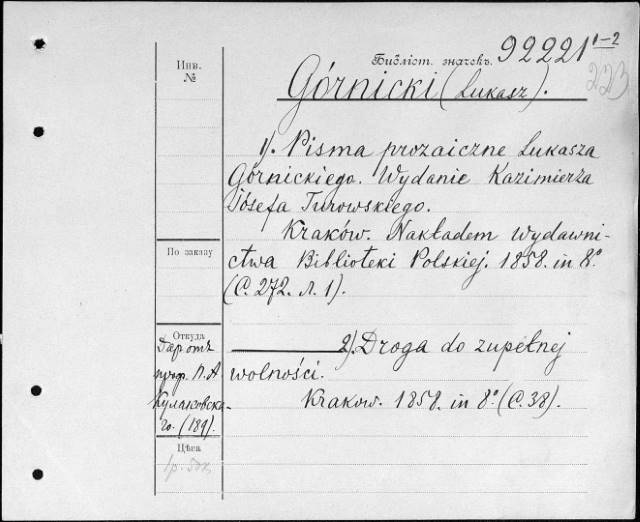 Библіот. значекъ. 92221 1-2
223
Инв. №
Górnicki (Łukasz).
1). Pisma prozaiczne Łukasza
Górnickiego. Wydanie Kazimierza
Józefa Turowskiego.
Kraków. Nakładem wydawni-
ctwa Biblioteki Polskiej. 1858. in 8°
(С. 272. л. 1).
По заказу
Откуда
Даръ отъ
проф. П. А
Кулаковска-
го. (189).
2). Droga do zupełnej
wolności.
Krakow. 1858. in 8° (С. 38).
Цѣна